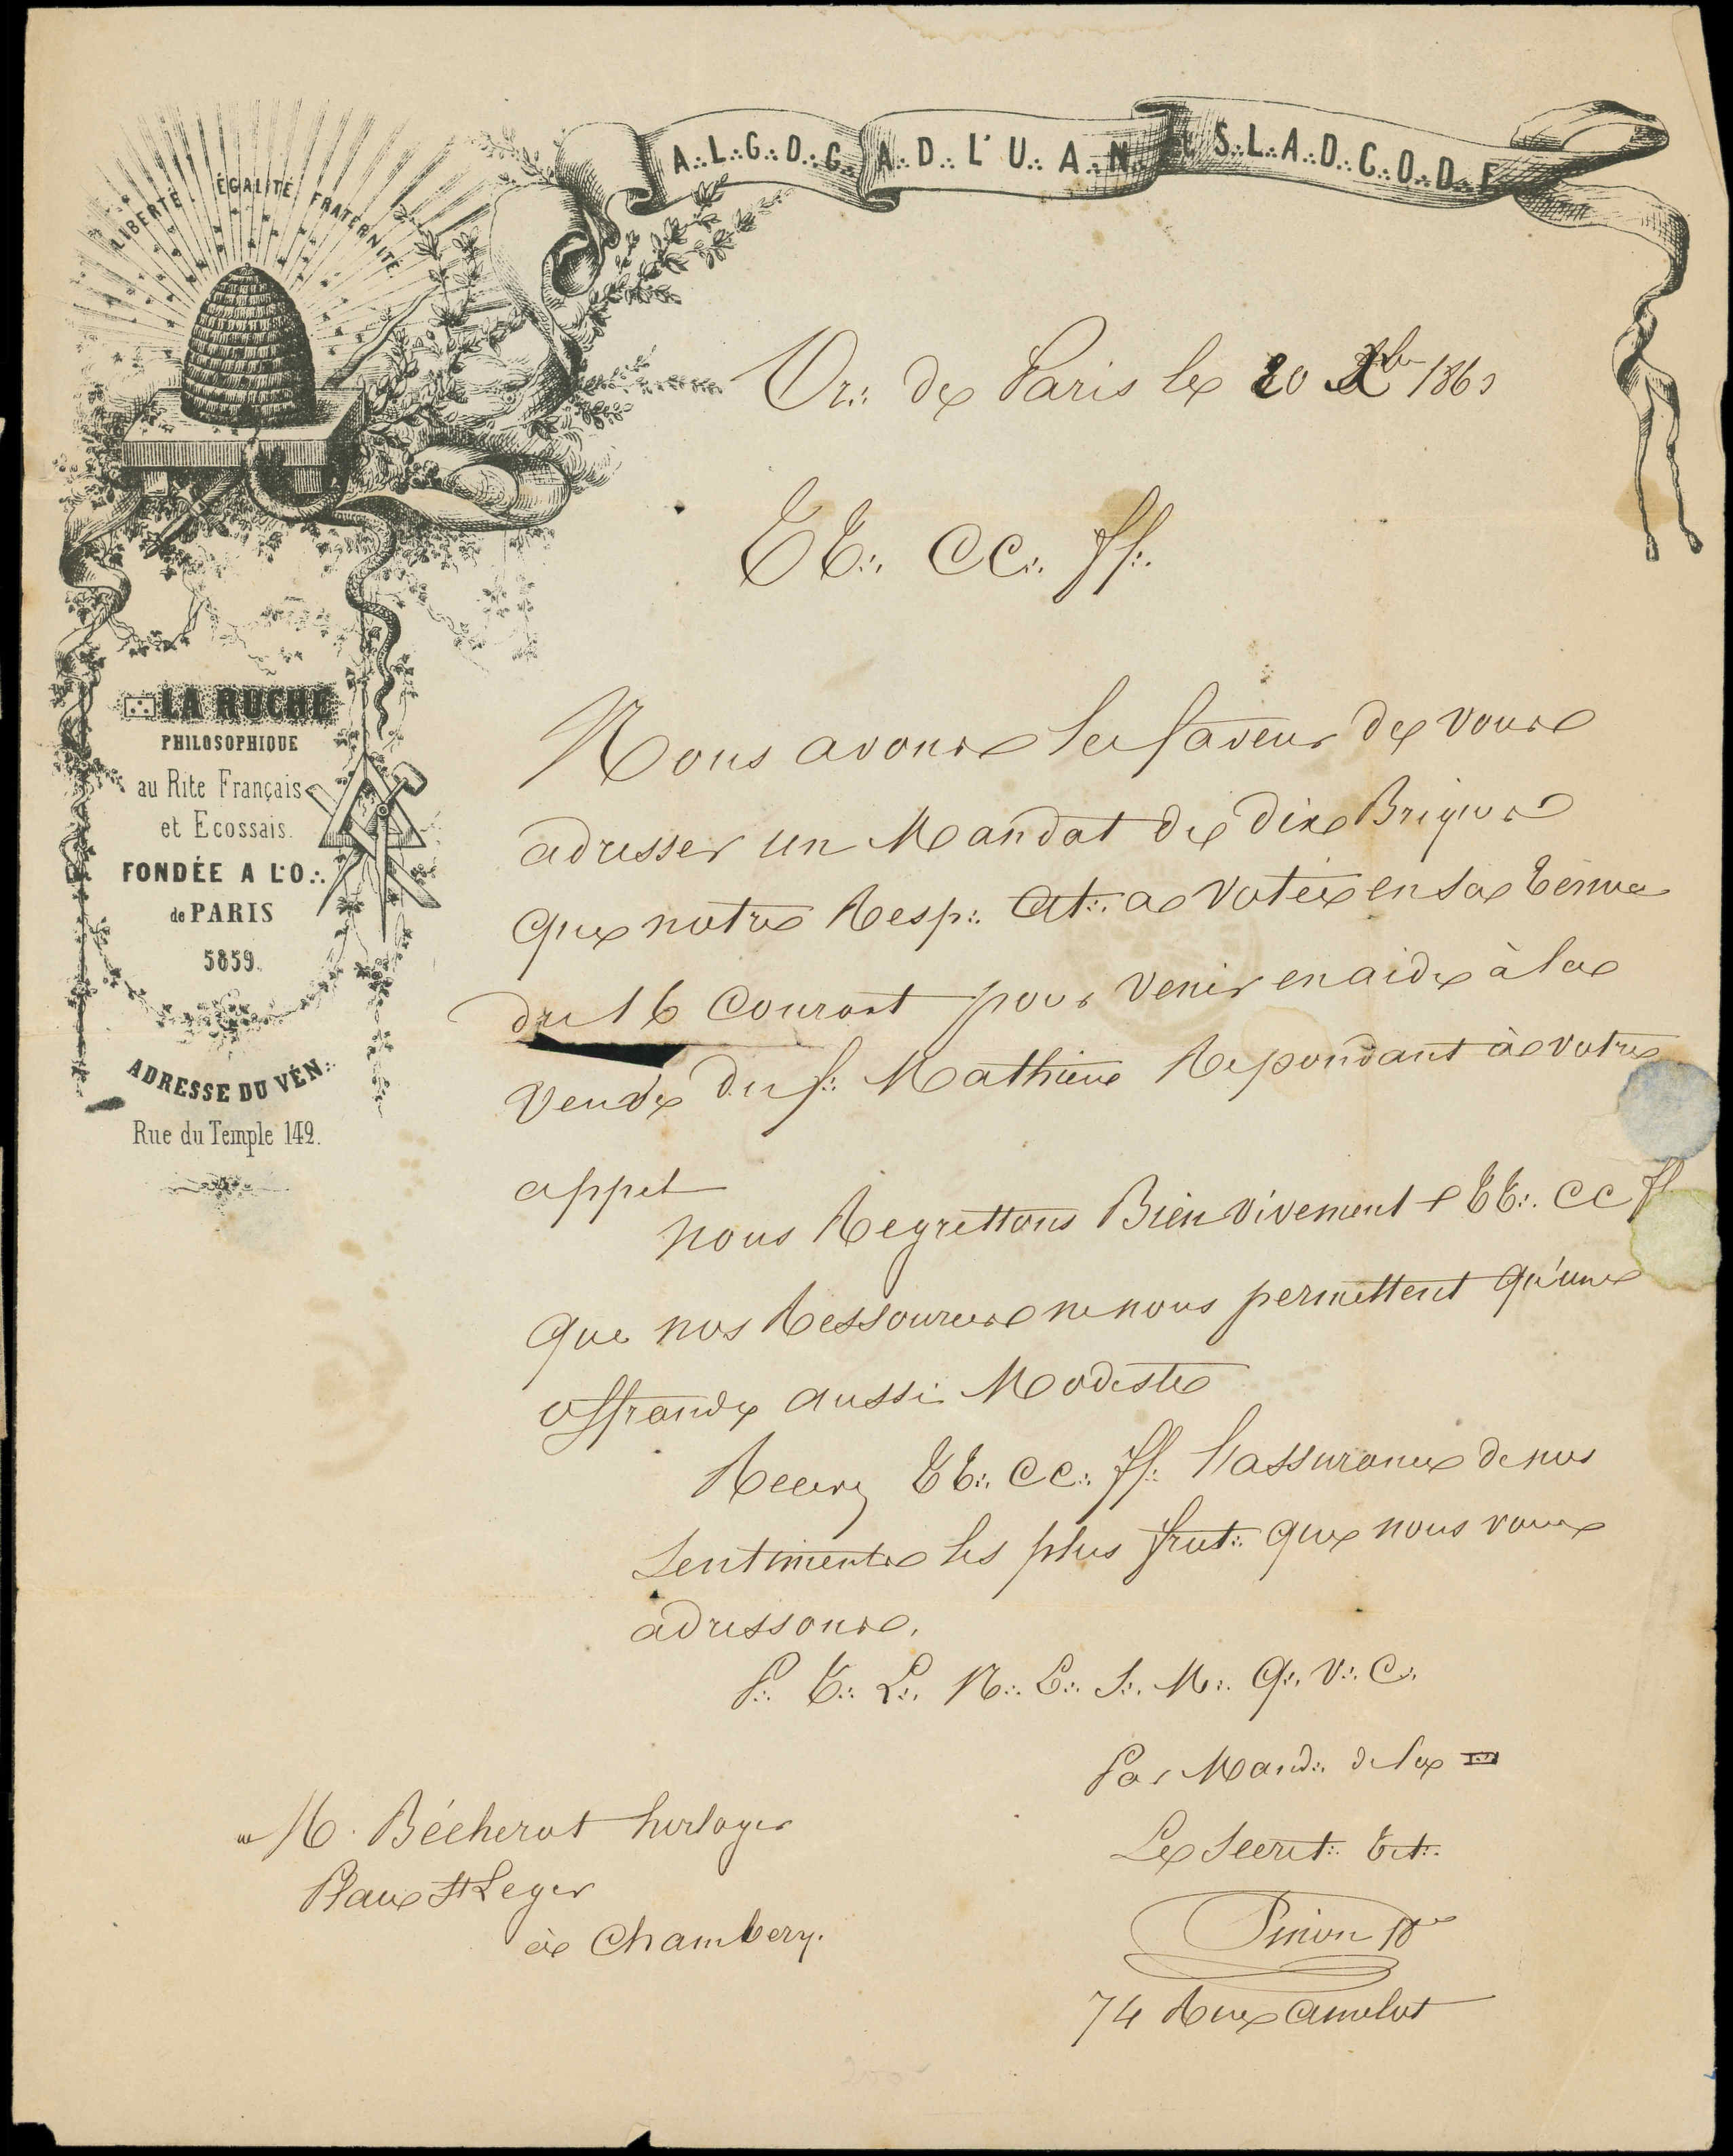 A∴L∴G∴D∴G∴A∴D∴L'U∴A∴N∴ & S∴L∴A∴D∴G∴O∴D∴F
LIBERTÉ ÉGALITÉ FRATERNITÉ
LA RUCHE
PHILOSOPHIQUE
au Rite Français
et Ecossais.
FONDÉE A L'O∴
de PARIS
5859.
ADRESSE DU VÉN∴
Rue du Temple 142.
Or∴ de Paris le 20 Xbre 186
TT∴ CC∴ ff∴
Nous avons la faveur de vous
adresser un Mandat de dix Briques
que notre Resp∴ At∴ a votée en sa tenue
du 16 Courant pour venir en aide à la
veuve du f∴ Mathieu Repondant à votre
appel
nous Regrettons Bien vivement TT∴ CC ff
que nos Ressources ne nous permettent qu'une
offrande aussi Modeste
Recevez TT∴ CC∴ ff∴ l'assurance de nos
sentiments les plus frat∴ que nous vous
adressons.
P∴ T∴ L∴ N∴ C∴ S∴ M∴ Q∴ V∴ C∴
Par Mand∴ de la
Le Secret∴
Pinon
74 Rue Amelot
M. Bécherat horloger
Place St Leger
à Chambery.